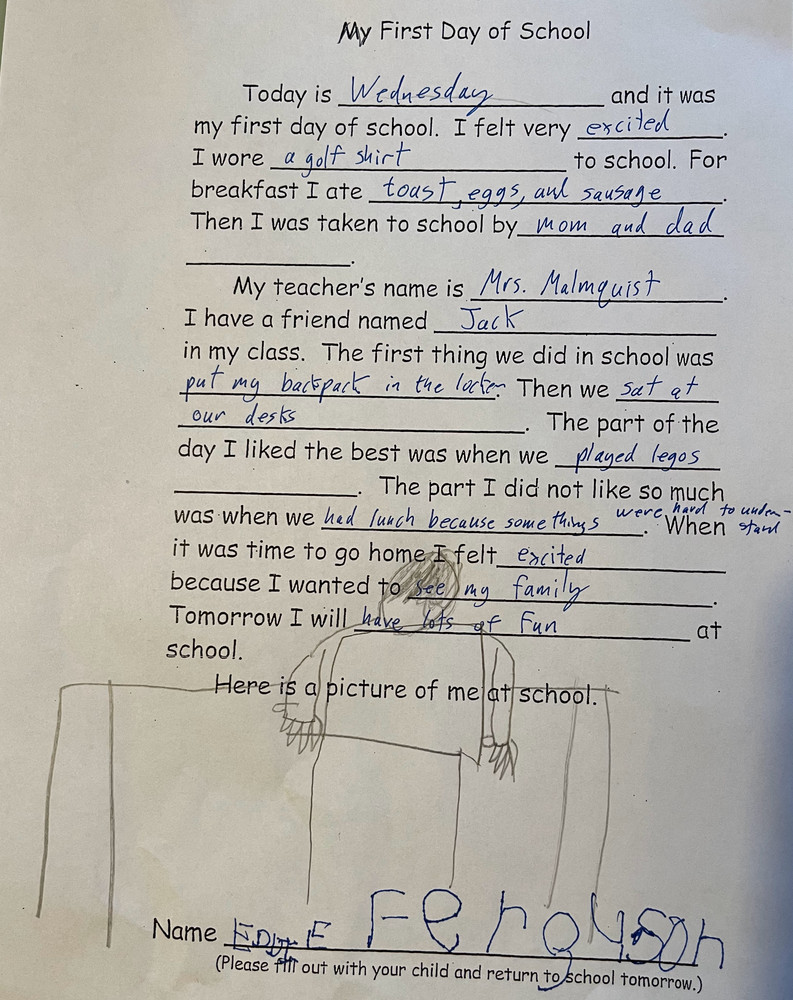 My First Day of School
Today is Wednesday and it was
my first day of school. I felt very excited.
I wore a golf shirt to school. For
breakfast I ate toast, eggs, and sausage.
Then I was taken to school by mom and dad
.
My teacher's name is Mrs. Malmquist.
I have a friend named Jack
in my class. The first thing we did in school was
put my backpack in the locker. Then we sat at
our desks. The part of the
day I liked the best was when we played legos
. The part I did not like so much
was when we had lunch because some things were hard to under-
stand. When
it was time to go home I felt excited
because I wanted to see my family.
Tomorrow I will have lots of fun at
school.
Here is a picture of me at school.
Name EDDIE Ferguson
(Please fill out with your child and return to school tomorrow.)